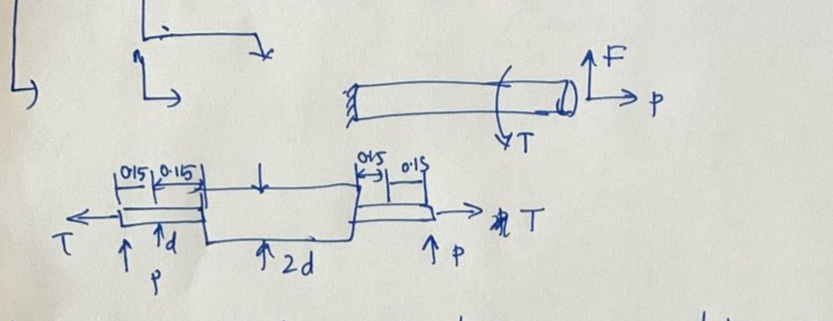 F
P
T
0.15 0.15
0.15 0.15
T
T
d
P
2d
P